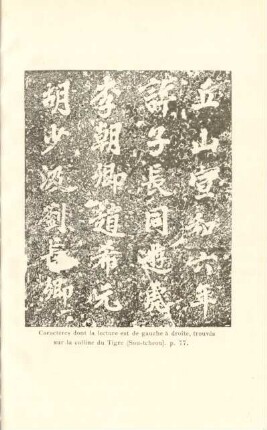 胡少汲劉長卿
李朝卿趙希元
許子長同遊虎
丘山宣和六年
Caractères dont la lecture est de gauche à droite, trouvés
sur la colline du Tigre (Sou-tcheou). p. 17.